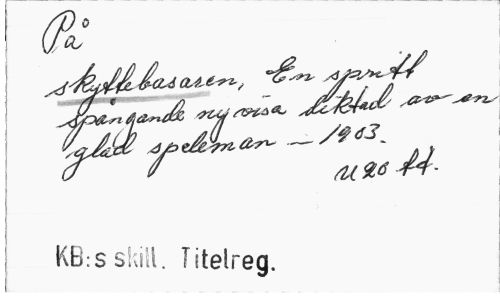 På
skyttebasaren, En spritt
spångande ny visa diktad av en
glad speleman – 1903.
U 20 tt.
KB:s skill. Titelreg.